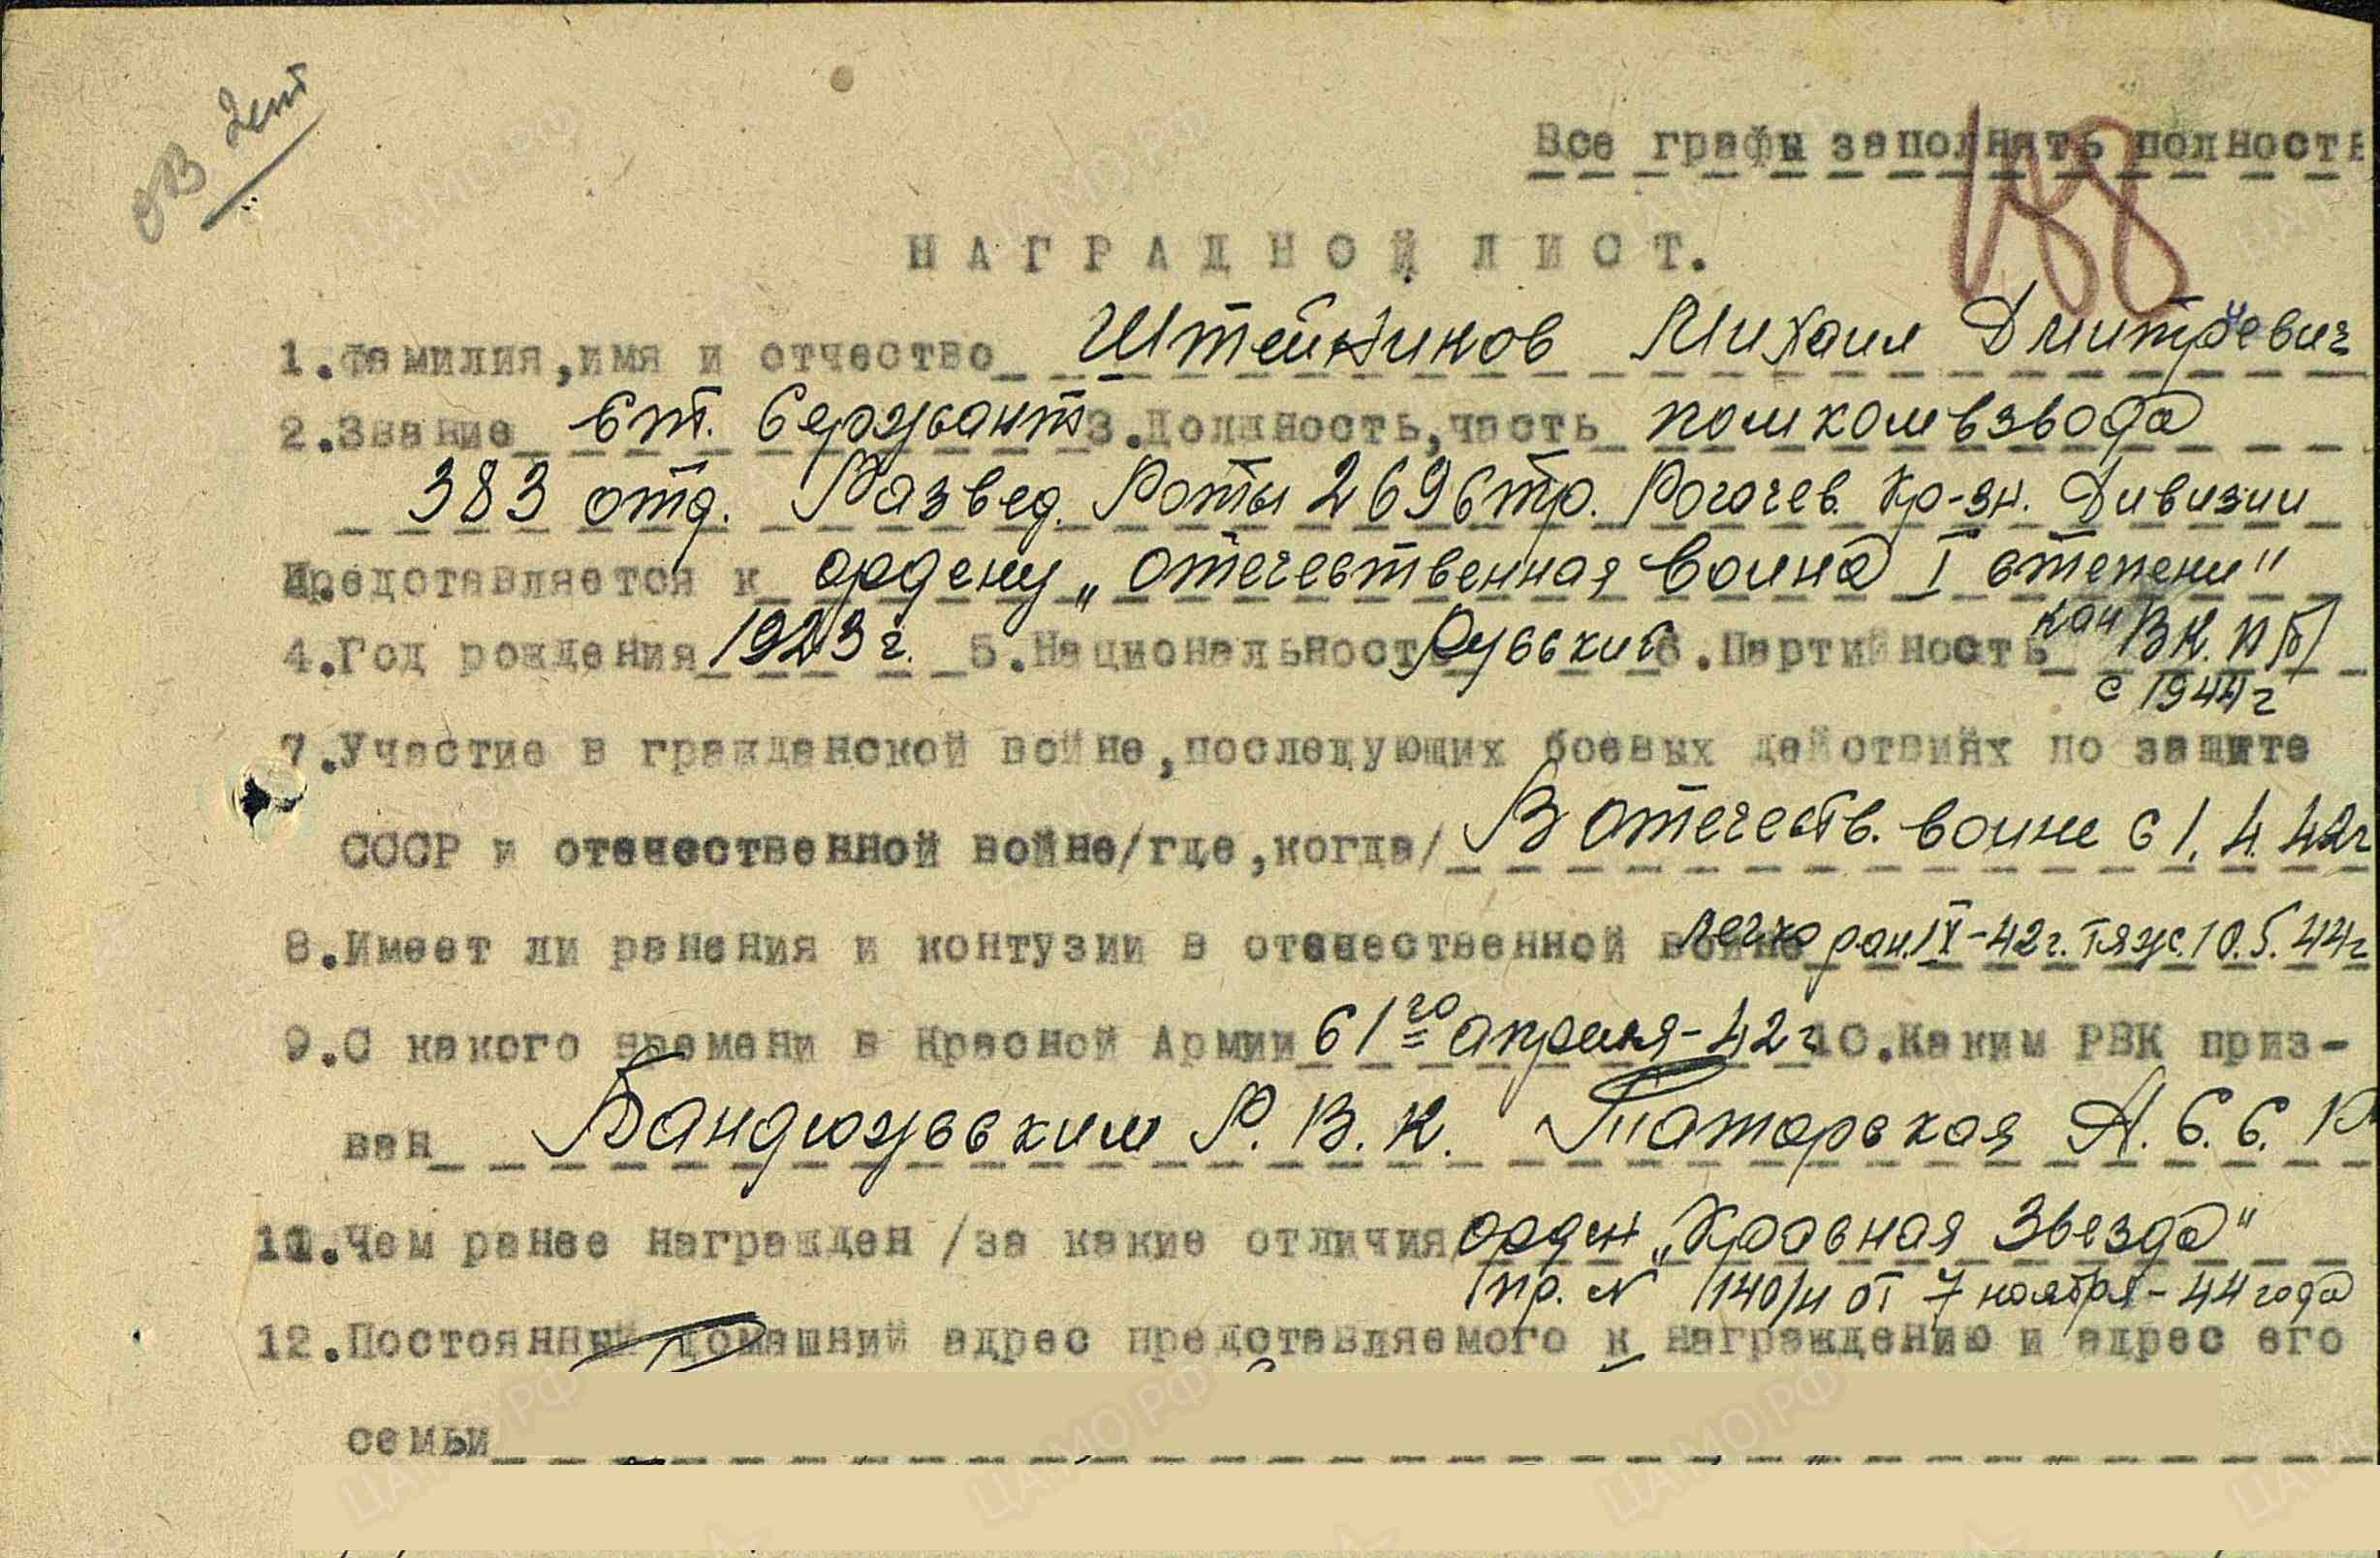 ОВ 2 ст
Все графы заполнять полность
188
НАГРАДНОЙ ЛИСТ.
1.Фамилия,имя и отчество Штейников Михаил Дмитриевич
2.Звание Ст. Сержант 3.Должность,часть пом ком взвода
383 отд. Развед. Роты 269 Стр. Рогачев. Кр-зн. Дивизии
Представляется к ордену „Отечественная Война I степени"
4.Год рождения 1923 г. 5.Национальность Русский 6.Партийность кан ВК.П/б/
с 1944 г
7.Участие в гражданской войне,последующих боевых действиях по защите
СССР и отечественной войне/где,когда/ В отечеств. войне с 1.4.42г
8.Имеет ли ранения и контузии в отечественной войне легко ран. IX-42г. тяж. 10.5.44г
9.С какого времени в Красной Армии с 1го апреля-42г 10.Каким РВК приз-
ван Бандюжским Р.В.К. Татарская А.С.С.Р
11.Чем ранее награжден /за какие отличия орден „Красная Звезда"
пр. N 140/н от 7 ноября-44 года
12.Постоянный домашний адрес представляемого к награждению и адрес его
семьи